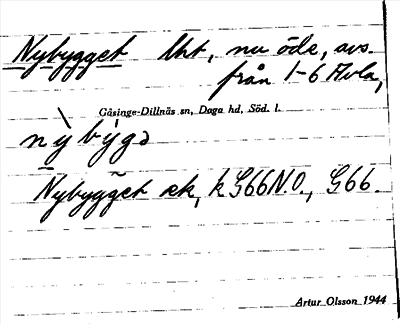 Nybygget lht, nu öde, avs.
från 1-6 Avla,
Gåsinge-Dillnäs sn, Daga hd, Söd. l.
nỳ býgə
Nybygget ek, k G66N.O., G66.
Artur Olsson 1944